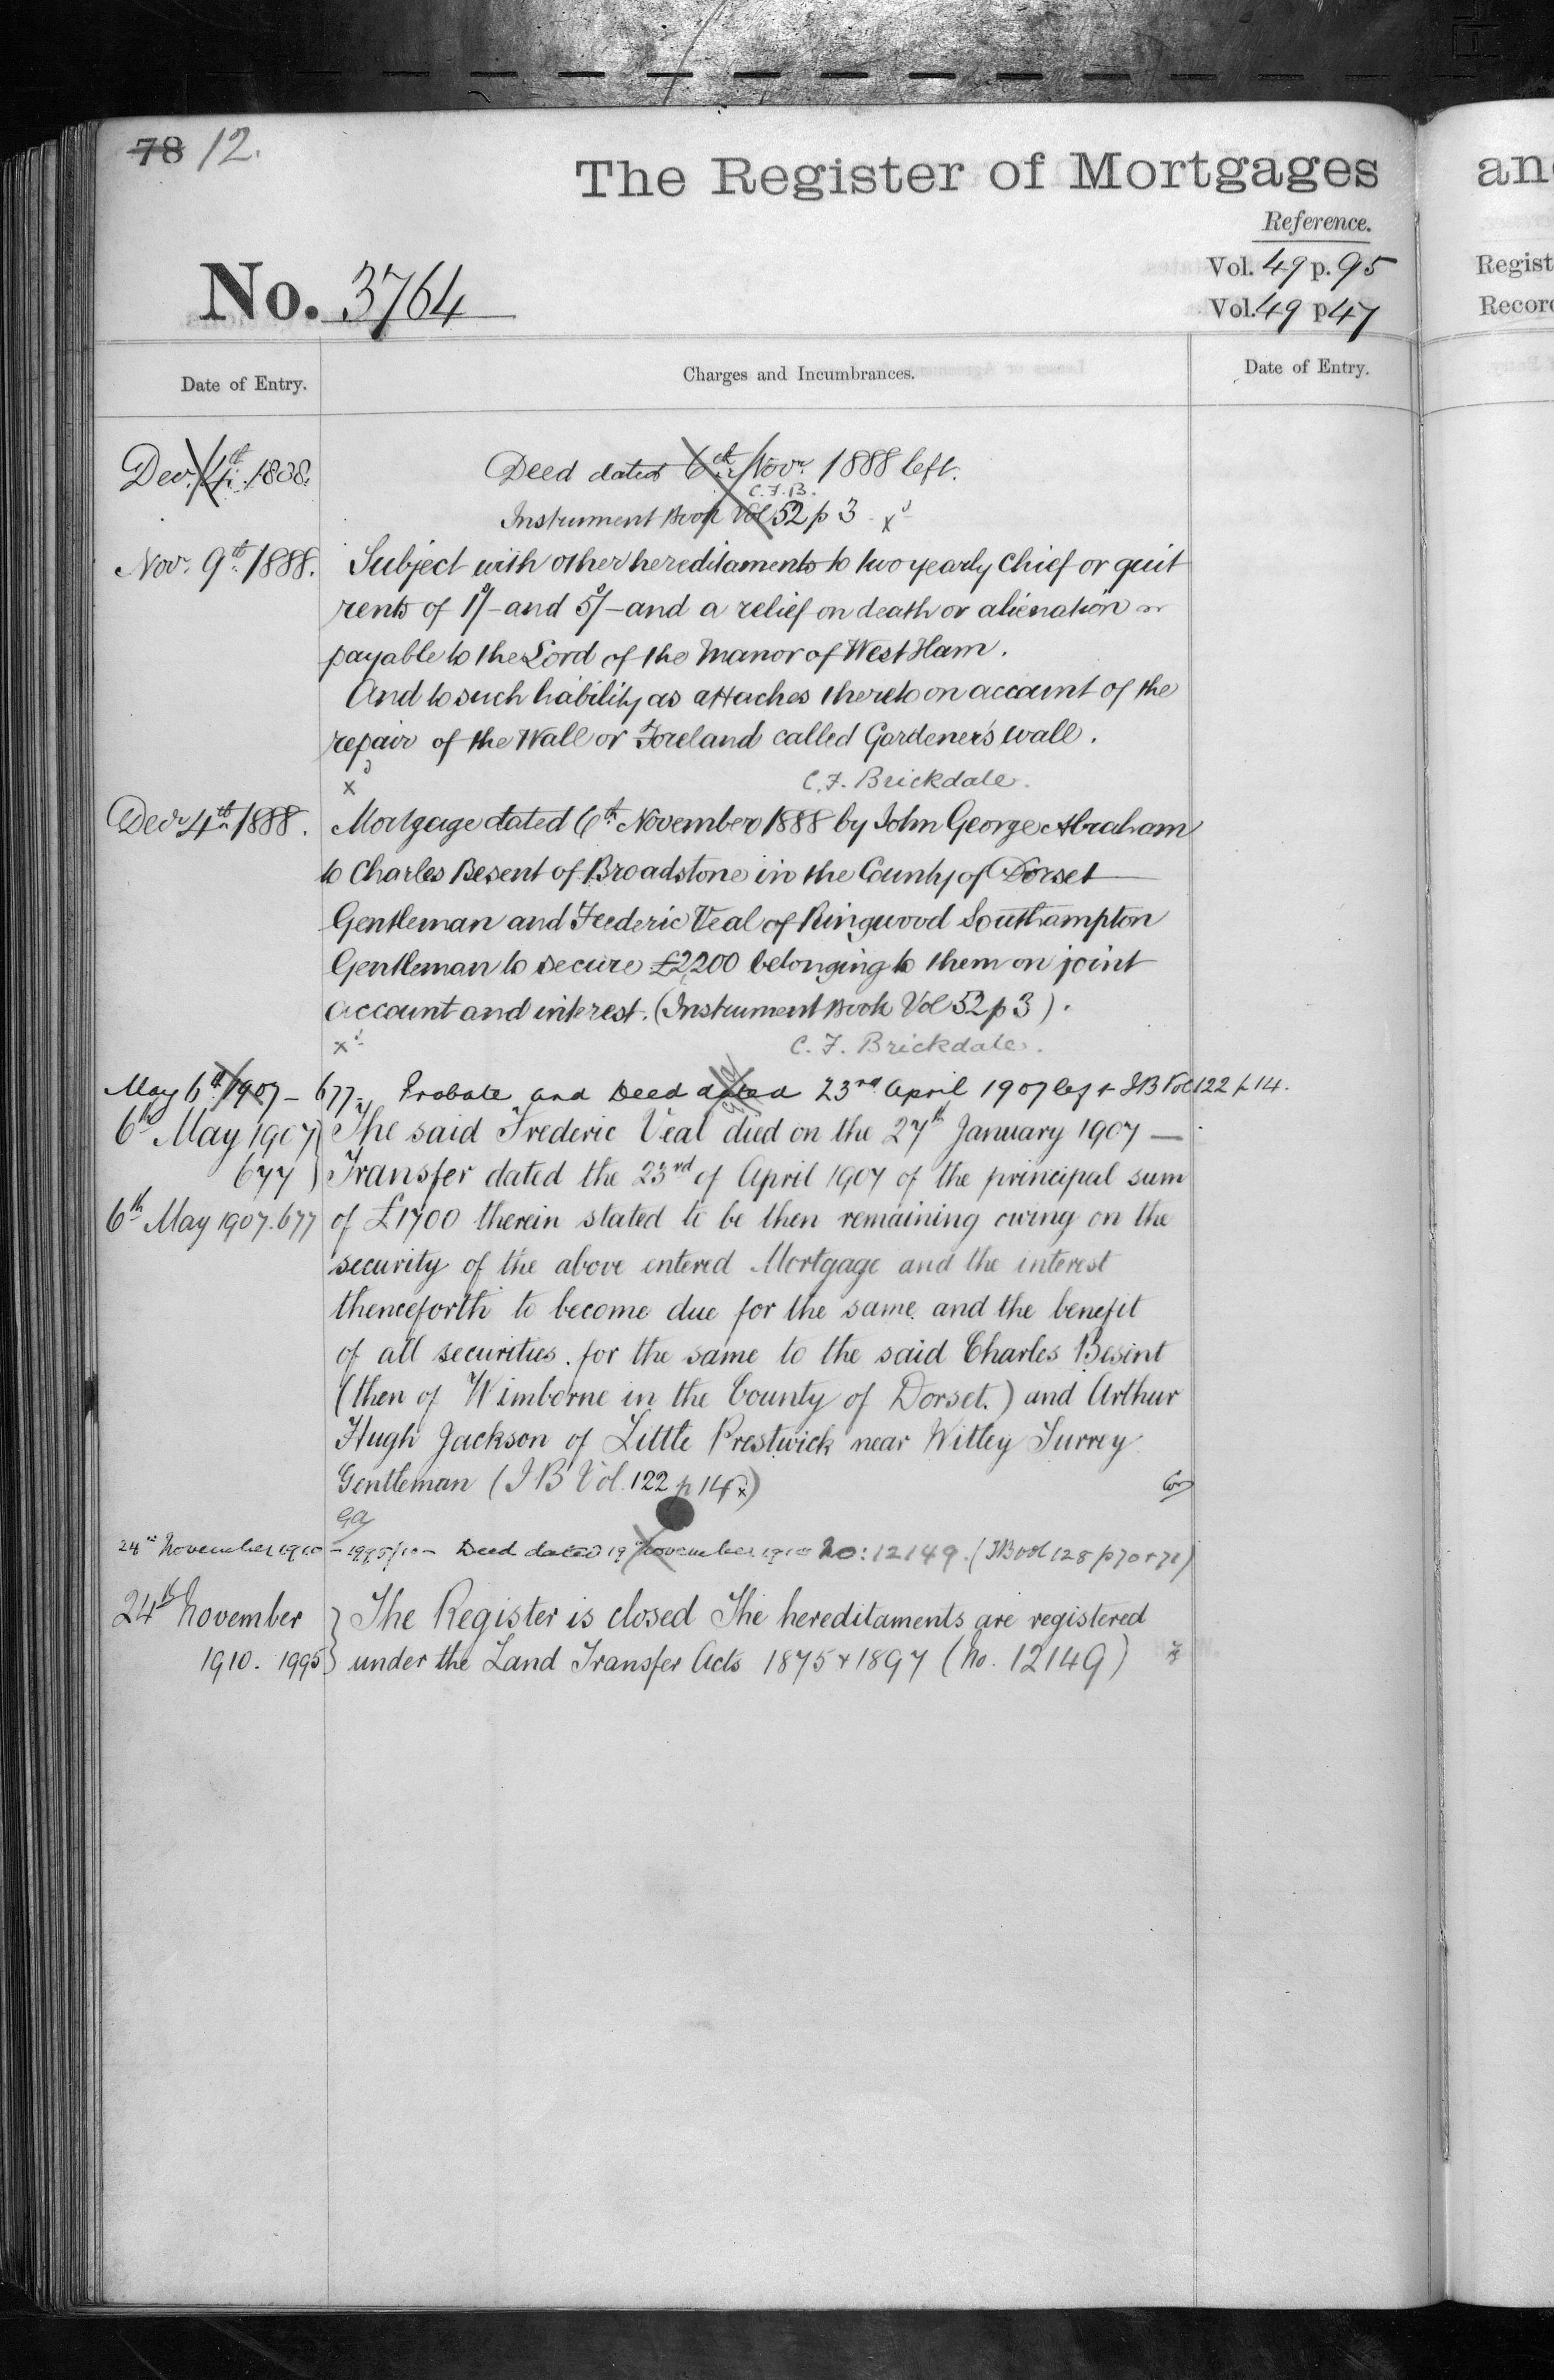 78 12.
The Register of Mortgages
Reference.
Vol. 49 p. 95
No. 3764
Vol. 49 p 47
Date of Entry.
Charges and Incumbrances.
Date of Entry.
Dec. 4th 1888.
Deed dated 6th Novr. 1888 left.
C.F.B.
Instrument Book Vol 52 p 3 x
Nov. 9th 1888.
Subject with other hereditaments to two yearly Chief or quit
rents of 1/- and 5/- and a relief on death or alienation
payable to the Lord of the Manor of West Ham.
And to such liability as attaches thereto on account of the
repair of the Wall or Foreland called Gardener's wall.
x C.F. Brickdale.
Decr 4th 1888.
Mortgage dated 6th November 1888 by John George Abraham
to Charles Besent of Broadstone in the County of Dorset
Gentleman and Frederic Veal of Ringwood Southampton
Gentleman to secure £2,200 belonging to them on joint
account and interest. (Instrument Book Vol 52 p 3).
x C. F. Brickdale.
May 6th 1907 - 677 - Probate and Deed dated 23rd April 1907 left IB Vol 122 p 14.
6th May 1907 } The said Frederic Veal died on the 27th January 1907 —
677 } Transfer dated the 23rd of April 1907 of the principal sum
6th May 1907. 677 of £1700 therein stated to be then remaining owing on the
security of the above entered Mortgage and the interest
thenceforth to become due for the same and the benefit
of all securities for the same to the said Charles Besint
(then of Wimborne in the County of Dorset.) and Arthur
Hugh Jackson of Little Prestwick near Witley Surrey
Gentleman (I B Vol. 122 p 14 x)
24th November 1910 - 1995/10 - Deed dated 19th November 1910 No: 12149. (IB vol 128 p 70 + 71)
24th November } The Register is closed The hereditaments are registered
1910. 1995 } under the Land Transfer Acts 1875 & 1897 (No. 12149)
an
Regist
Record